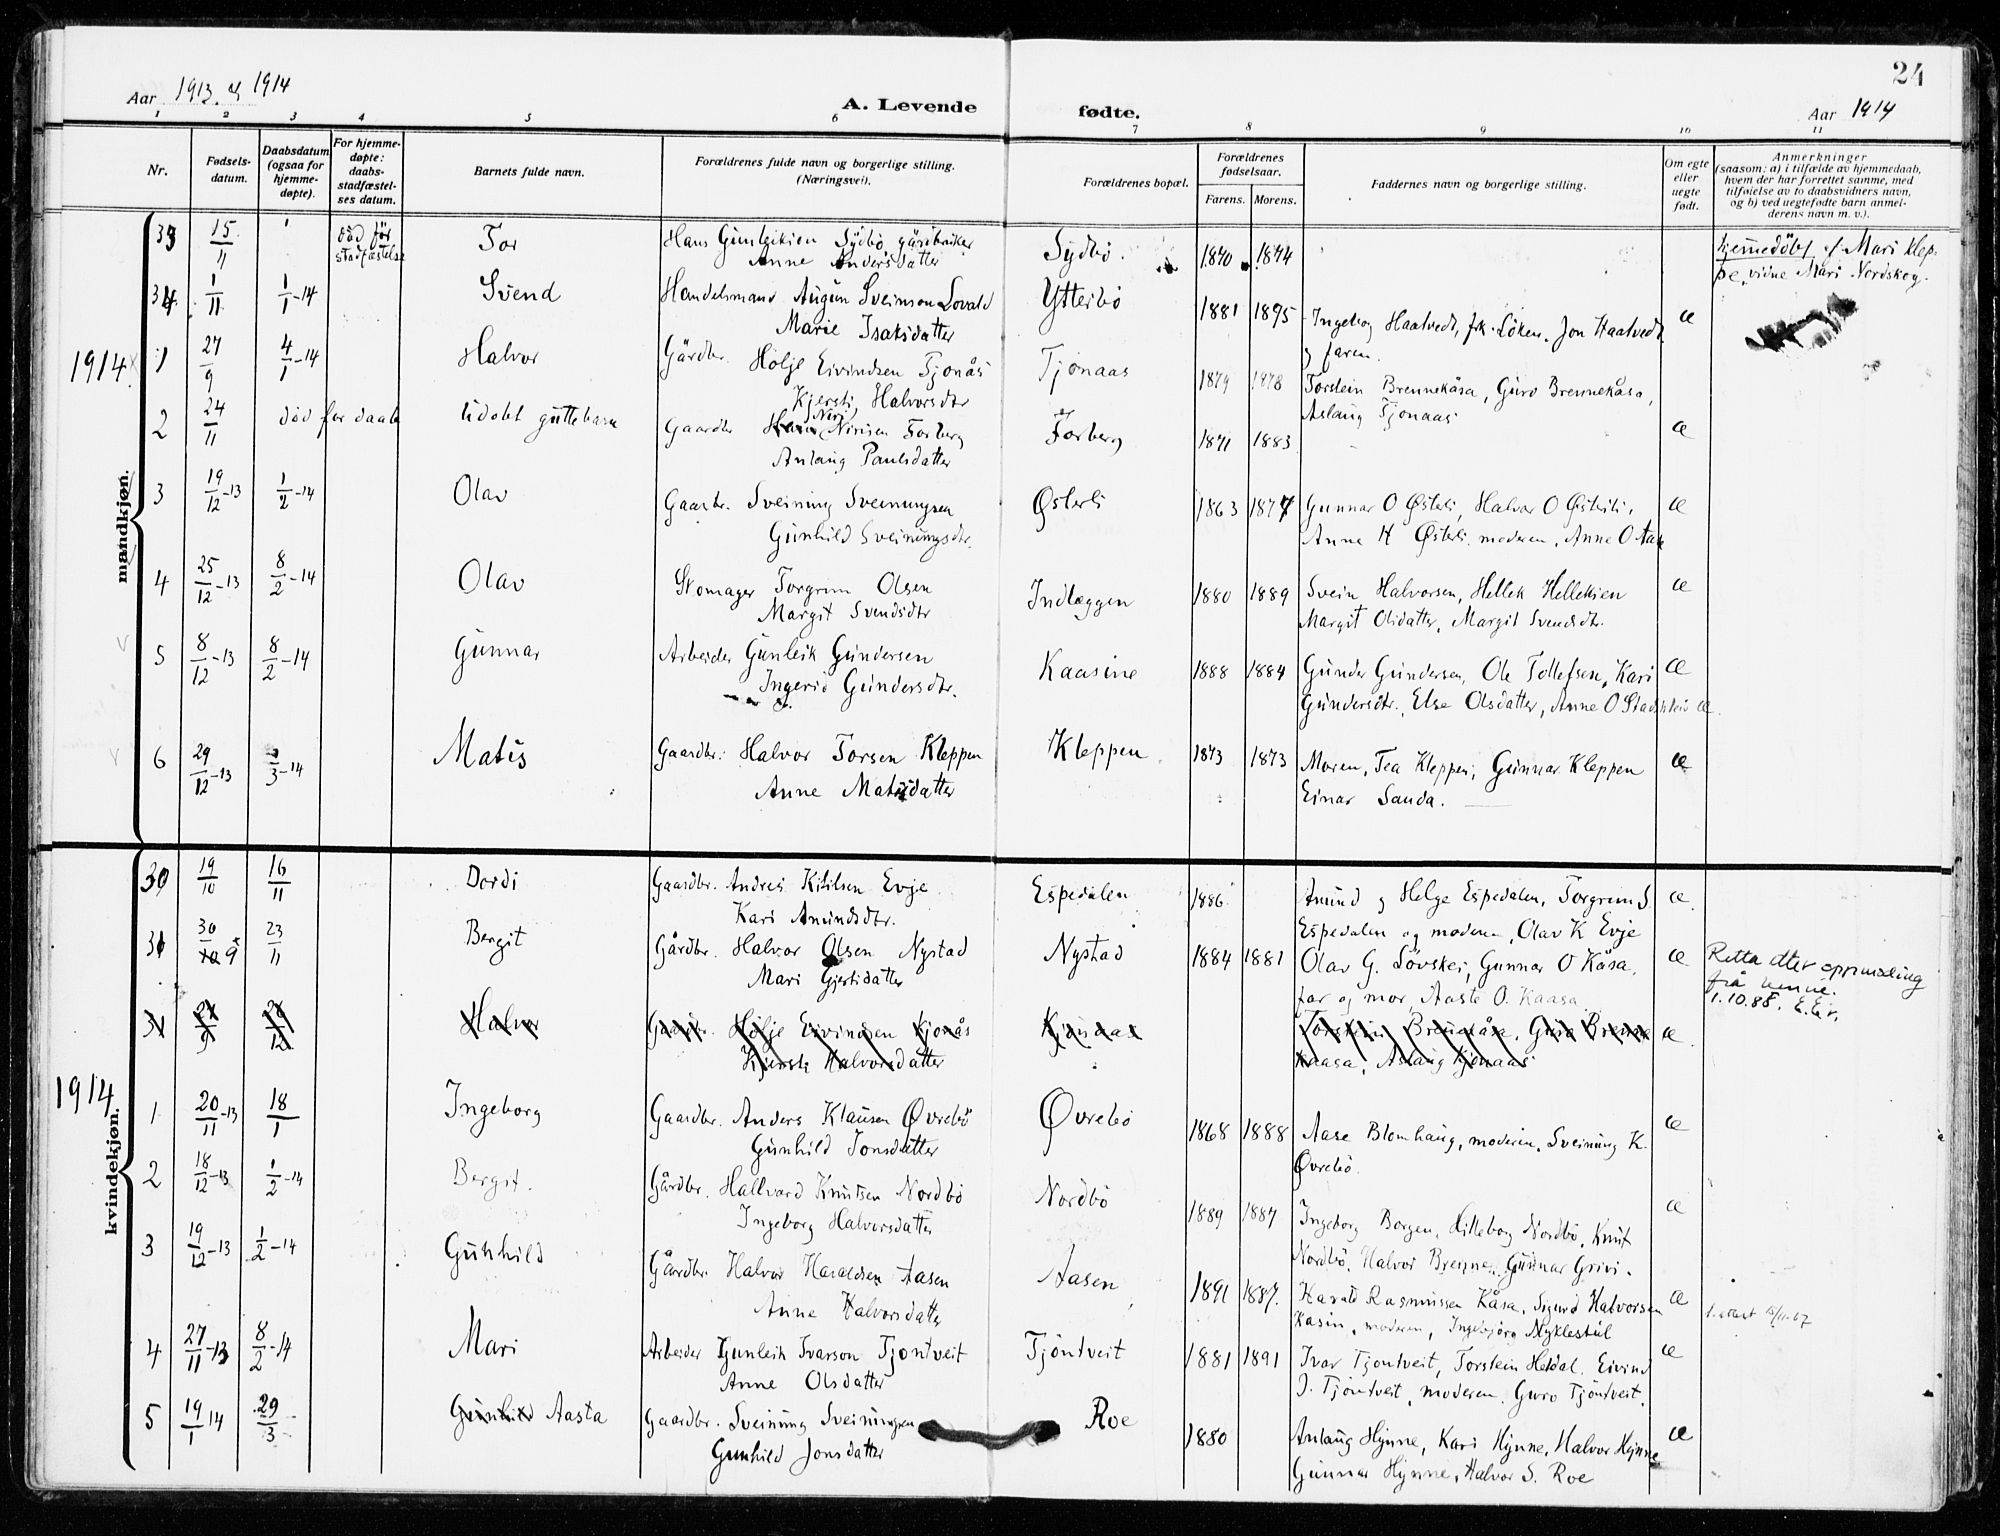 24
Aar 1913 & 1914
A. Levende fødte.
Aar 1914
1 2 3 4 5 6 7 8 9 10 11
Nr.
Fødsels-
datum.
Daabsdatum
(ogsaa for
hjemme-
døpte).
For hjemme-
døpte:
daabs-
stadfæstel-
ses datum.
Barnets fulde navn.
Forældrenes fulde navn og borgerlige stilling.
(Næringsvei).
Forældrenes bopæl.
Forældrenes
fødselsaar.
Farens. Morens.
Faddernes navn og borgerlige stilling.
Om egte
eller
uegte
født.
Anmerkninger
(saasom: a) i tilfælde av hjemmedaab,
hvem der har forrettet samme, med
tilføielse av to daabsvidners navn,
og b) ved uegtefødte barn anmel-
derens navn m. v.).
mandkjøn.
33 15/11 død før Tor Hans Gunleiksen Sydbø, gårdbruker Sydbø. 1870 1874 hjemmedøbt af Mari Klep-
stadfæstelse Anne Andersdatter pe, vidne Mari Nordskog.
34 1/11 1/1-14 Svend Handelsmand Augun Sveinson Lovald Ytterbø 1881 1895 Ingeborg Haatvedt, frk. Løken, Jon Haatvedt æ
Marie Isaksdatter og faren.
1914
1 27/9 4/1-14 Halvor Gårdbr. Holje Eivindsen Tjønås Tjønaas 1879 1878 Torstein Brennekåsa, Guro Brennekåsa,
Kjersti Halvorsdtr Aslaug Tjonaas
2 24/11 død før daab Udøbt guttebarn Gaardbr Niri Nirisen Forberg Forberg 1871 1883 æ
Anlaug Paulsdatter
3 19/12-13 1/2-14 Olav Gaardbr. Sveinung Sveinungsen Østerli 1863 1877 Gunnar O Østerli, Halvor O Østerli, æ
Gunhild Sveinungsdtr. Anne H Østerli, moderen, Anne O
4 25/12-13 8/2-14 Olav Skomager Torgrim Olsen Indlæggen 1880 1889 Svein Halvorsen, Hellek Helleksen æ
Margit Svendsdtr Margit Olsdatter, Margit Svendsdtr.
5 8/12-13 8/2-14 Gunnar Arbeider Gunleik Gundersen Kaasine 1888 1884 Gunder Gundersen, Ole Tollefsen, Kari æ
Ingerid Gundersdtr. Gundersdtr., Else Olsdatter, Anne O æ
6 29/12-13 /3-14 Matis Gaardbr: Halvor Torsen Kleppen Kleppen 1873 1873 Moren, Tea Kleppen, Gunnar Kleppen æ
Anne Matisdatter Einar Sanda.
kvindekjøn.
30 19/10 16/11 Dordi Gaardbr. Andres Kitilsen Evje Espedalen 1886 Amund og Helge Espedalen, Torgrim S. æ
Kari Amundsdtr. Espedalen og moderen, Olav K Evje
31 30/9 23/11 Bergit Gårdbr. Halvor Olsen Nystad Nystad 1884 1881 Olav G. Løvskei, Gunnar O Kåsa, æ Retta etter oppmoding
Mari Gjertsdatter far og mor, Aaste O. Kaasa frå henne.
1.10.85. E.E.v.
31 27/9 28/12 Halvor Gaardbr. Holje Eivindsen Kjonås Kjonaas Torstein Brennekåsa, Guro Brenne æ
Kjersti Halvorsdatter kaasa, Aslaug Kjonaas
1914
1 20/11-13 18/1 Ingeborg Gaardbr. Anders Klausen Øvrebø Øvrebø 1868 1888 Aase Blomhaug, moderen, Sveinung K. æ
Gunhild Jonsdatter Øvrebø.
2 18/12-13 1/2-14 Bergit. Gårdbr. Hallvard Knutsen Nordbø Nordbø 1889 1887 Ingeborg Borgen, Hilleborg Nordbø, Knut æ
Ingeborg Halvorsdatter Nordbø, Halvor Brenne, Gunnar Grivi.
3 19/12-13 1/2-14 Gunhild Gårdbr. Halvor Haraldsen Aasen Aasen 1891 1887 Harald Rasmussen Kåsa, Sigurd Halvorsen æ
Anne Halvorsdatter Kasin, moderen, Ingebjørg Myklestul
4 27/11-13 8/2-14 Mari Arbeider Gunleik Ivarson Tjontveit Tjöntveit 1881 1891 Ivar Tjontveit, Torstein Heddal, Eivind æ
Anne Olsdatter J. Tjöntveit, moderen, Guro Tjöntveit.
5 19/1 14 29/3 Gunhild Aasta Gaardbr. Sveinung Sveinungsen Roe 1880 Anlaug Hynne, Kari Hynne, Halvor Hynne æ
Gunhild Jonsdatter Gunnar Hynne, Halvor S. Roe